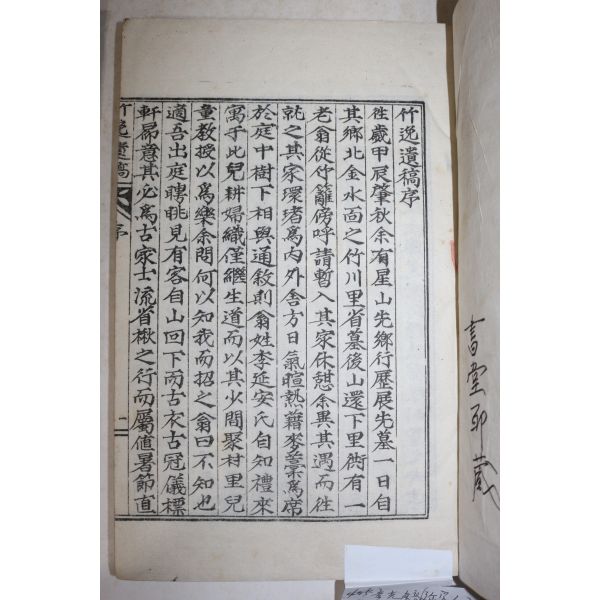 竹逸遺稿序
徃歲甲辰肇秋余有星山先鄉行歷展先墓一日自
其鄉北金水面之竹川里省墓後山還下里街有一
老翁從竹籬傍呼請暫入其家休憩余異其遇而徃
就之其家環堵爲內外舍方日氣暄熱藉麥藁爲席
於庭中樹下相與通敘則翁姓李延安氏自知禮來
寓于此兒耕婦織僅繼生道而以其少間聚村里兒
童敎授以爲樂余問何以知我而招之翁曰不知也
適吾出庭聘眺見有客自山回下而古衣古冠儀標
軒昻意其必爲古家士流省楸之行而屬値暑節直
竹逸遺稿 序 一
書堂
藏